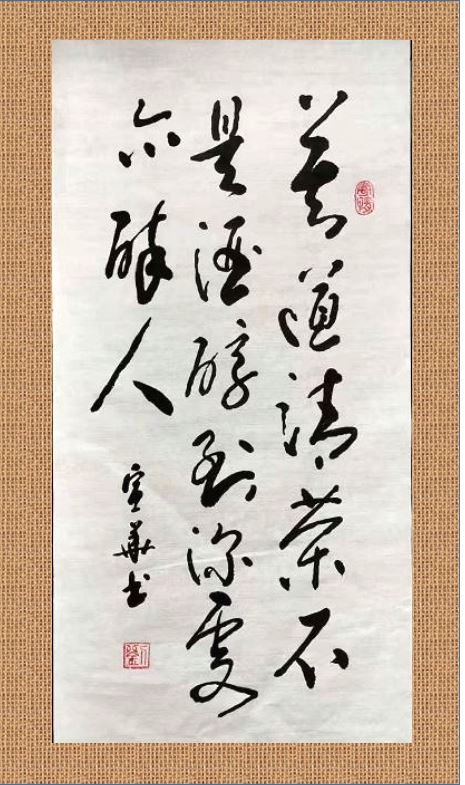 莫道清茶不
是酒醇到深處
亦醉人
宣華书